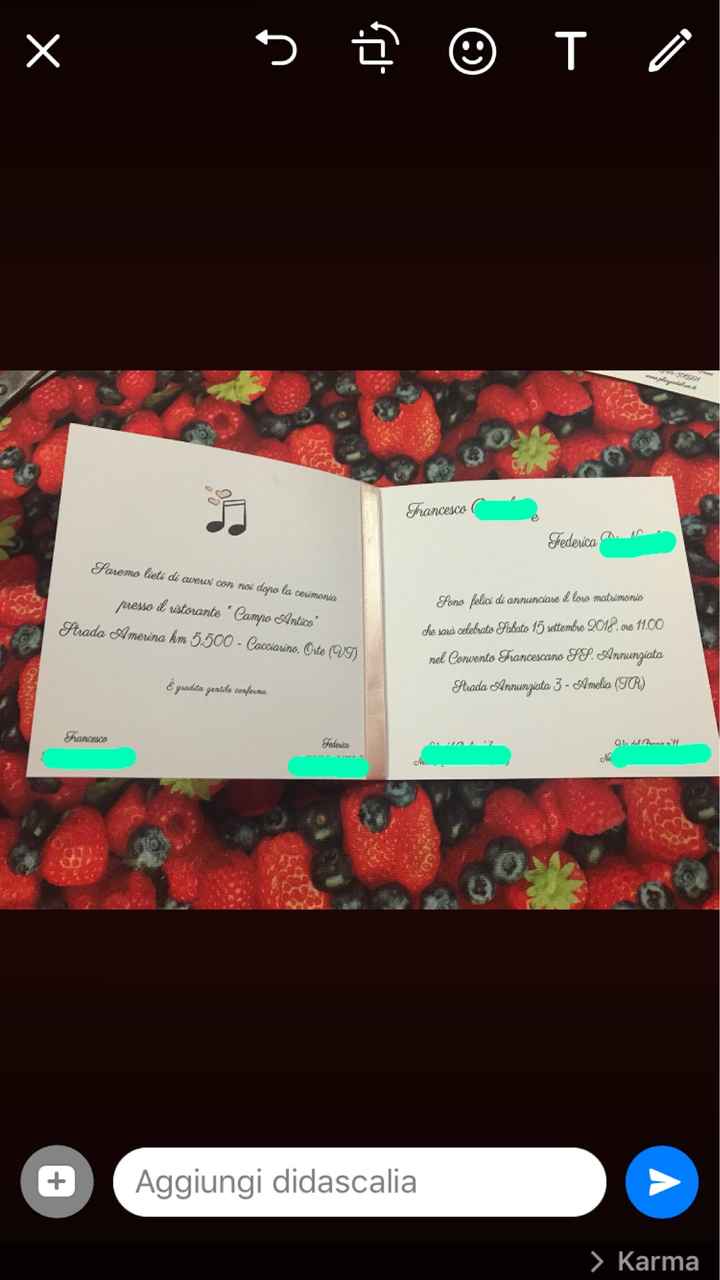 T
Saremo lieti di avervi con noi dopo la cerimonia
presso il ristorante " Campo Antico"
Strada Amerina km 5,500 - Cacciarino, Orte (VT)
È gradita gentile conferma
Francesco
Federica
Francesco
Federica
Sono felici di annunciare il loro matrimonio
che sarà celebrato Sabato 15 settembre 2018, ore 11.00
nel Convento Francescano SS. Annunziata
Strada Annunziata 3 - Amelia (TR)
Aggiungi didascalia
Karma